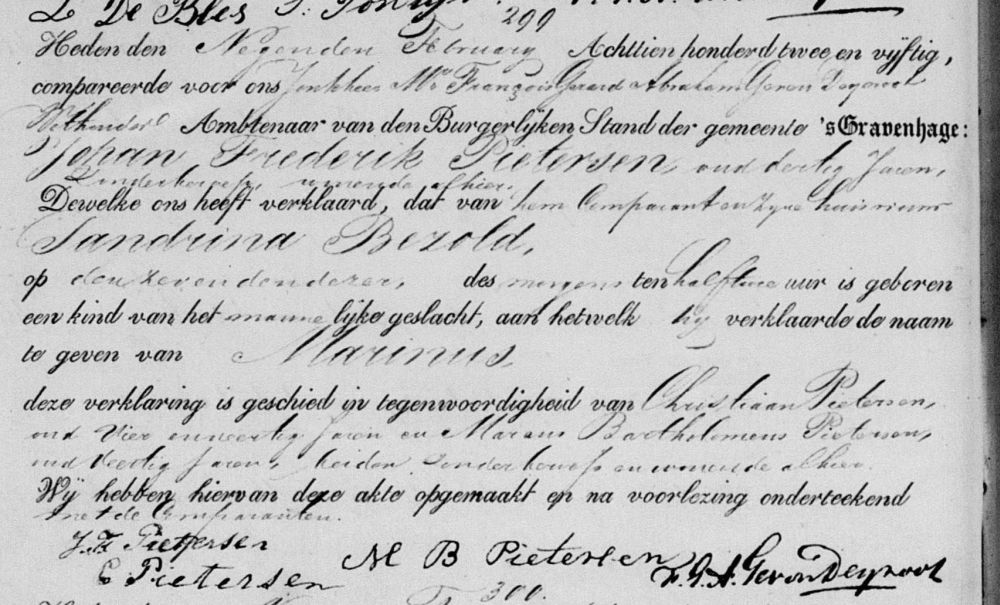 L De Bles
299
Heden den Negenden February Achttien honderd twee en vijftig,
compareerde voor ons Jonkheer Mr François Gerard Abraham Gevers Deynoot
Wethouder Ambtenaar van den Burgerlijken Stand der gemeente 's Gravenhage:
Johan Frederik Pietersen, oud dertig Jaren,
zonder beroep, wonende alhier.
Dewelke ons heeft verklaard, dat van hem Comparant en zyne huisvrouw
Sandrina Bezold,
op den zevenden dezer, des morgens ten half twee uur is geboren
een kind van het mannelijke geslacht, aan hetwelk hy verklaarde de naam
te geven van Marinus,
deze verklaring is geschied in tegenwoordigheid van Christiaan Pietersen,
oud vier en veertig Jaren en Marinus Bartholomeus Pietersen,
oud veertig Jaren, beiden zonder beroep en wonende alhier.
Wij hebben hiervan deze akte opgemaakt en na voorlezing onderteekend
met de Comparanten.
J.F. Pietersen
M B Pietersen
F.G.A. Gevers Deynoot
C Pietersen
300.